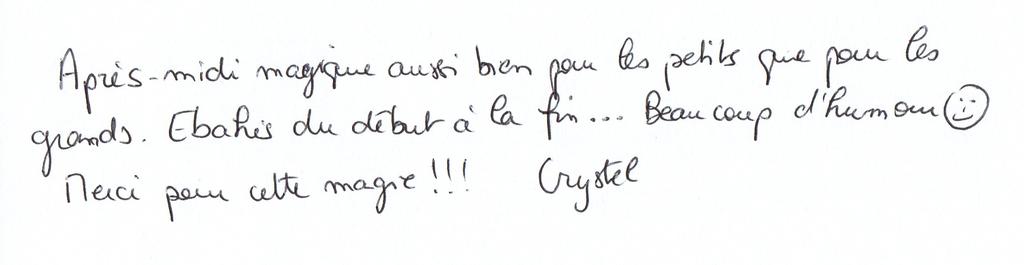 Après-midi magique aussi bien pour les petits que pour les
grands. Ebahis du début à la fin... Beaucoup d'humour ☺
Merci pour cette magie !!! Crystel